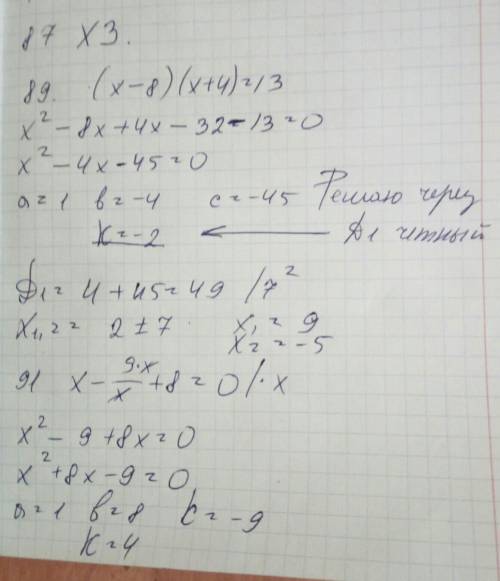 87 ХЗ.
89. (x-8)(x+4)=13
x² - 8x + 4x - 32 - 13 = 0
x² - 4x - 45 = 0
a = 1 в = -4 c = -45 Решаю через
k = -2 ← Д1 четный
Д1 = 4 + 45 = 49 /7²
X1,2 = 2 ± 7 x1 = 9
x2 = -5
91 x - 9·x/x + 8 = 0 /·x
x² - 9 + 8x = 0
x² + 8x - 9 = 0
a = 1 в = 8 c = -9
k = 4